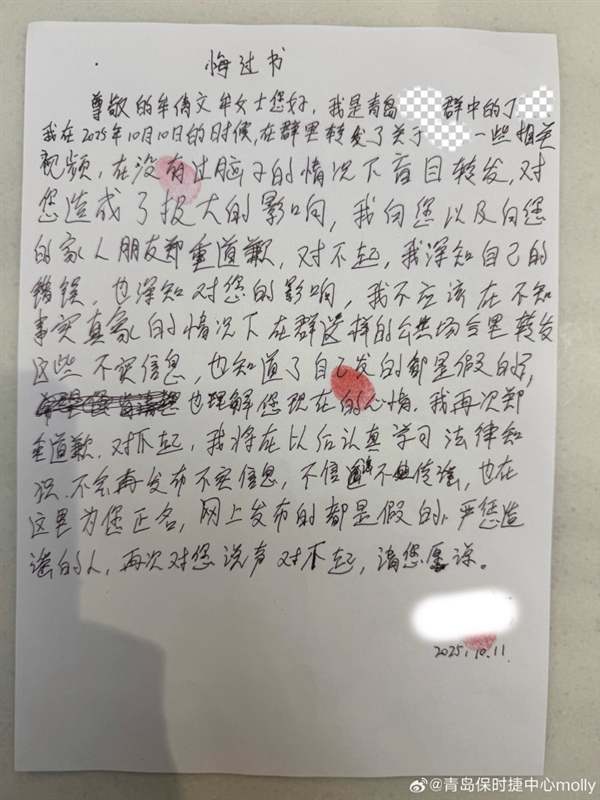 悔过书
尊敬的牟倩文牟女士您好，我是青岛 群中的丁
我在2025年10月10日的时候，在群里转发了关于 一些相关
视频，在没有过脑子的情况下盲目转发，对
您造成了极大的影响，我向您以及向您
的家人朋友郑重道歉，对不起，我深知自己的
错误，也深知对您的影响，我不应该在不知
事实真象的情况下在群这样的公共场合里转发
这些不实信息，也知道了自己发的都是假的，
也理解您现在的心情，我再次郑
重道歉，对不起，我将在以后认真学习法律知
识、不会再发布不实信息，不信谣不传谣，也在
这里为您正名，网上发布的都是假的，严惩造
谣的人，再次对您说声对不起，请您原谅。
2025.10.11
@青岛保时捷中心molly